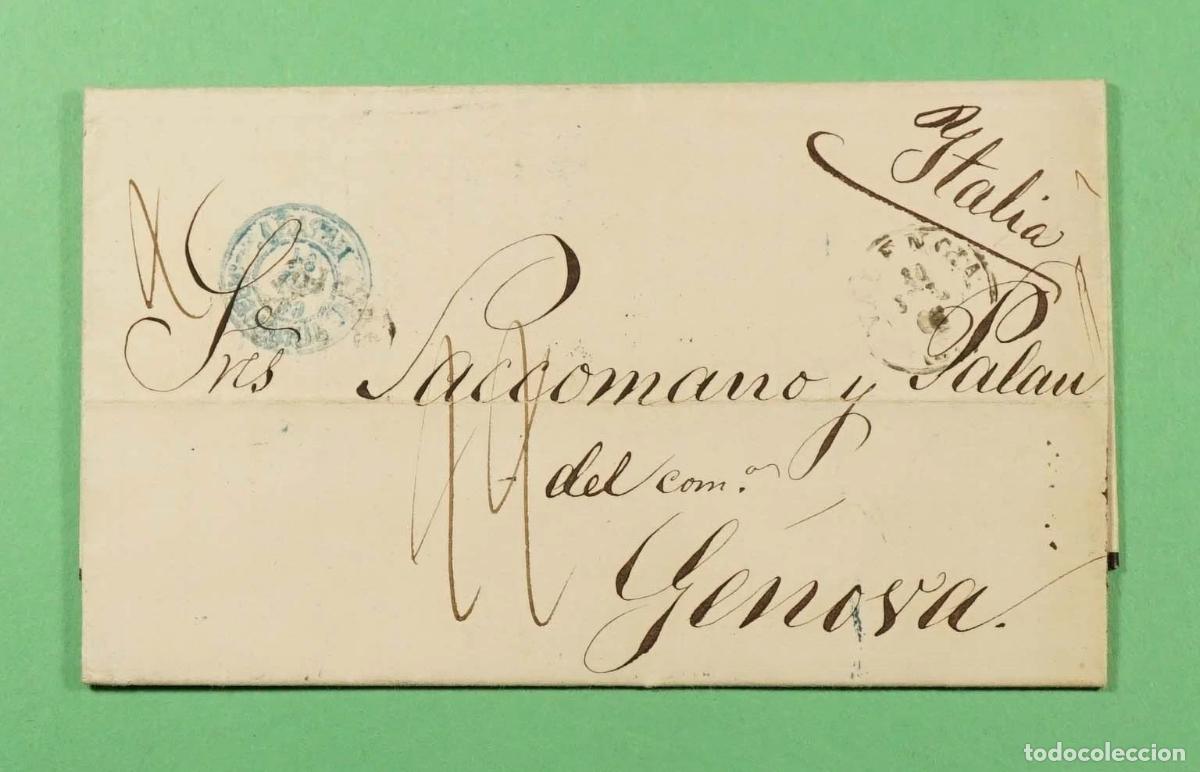 Italia
Sres Saccomano y Palau
del com.º
Genova.
todocoleccion